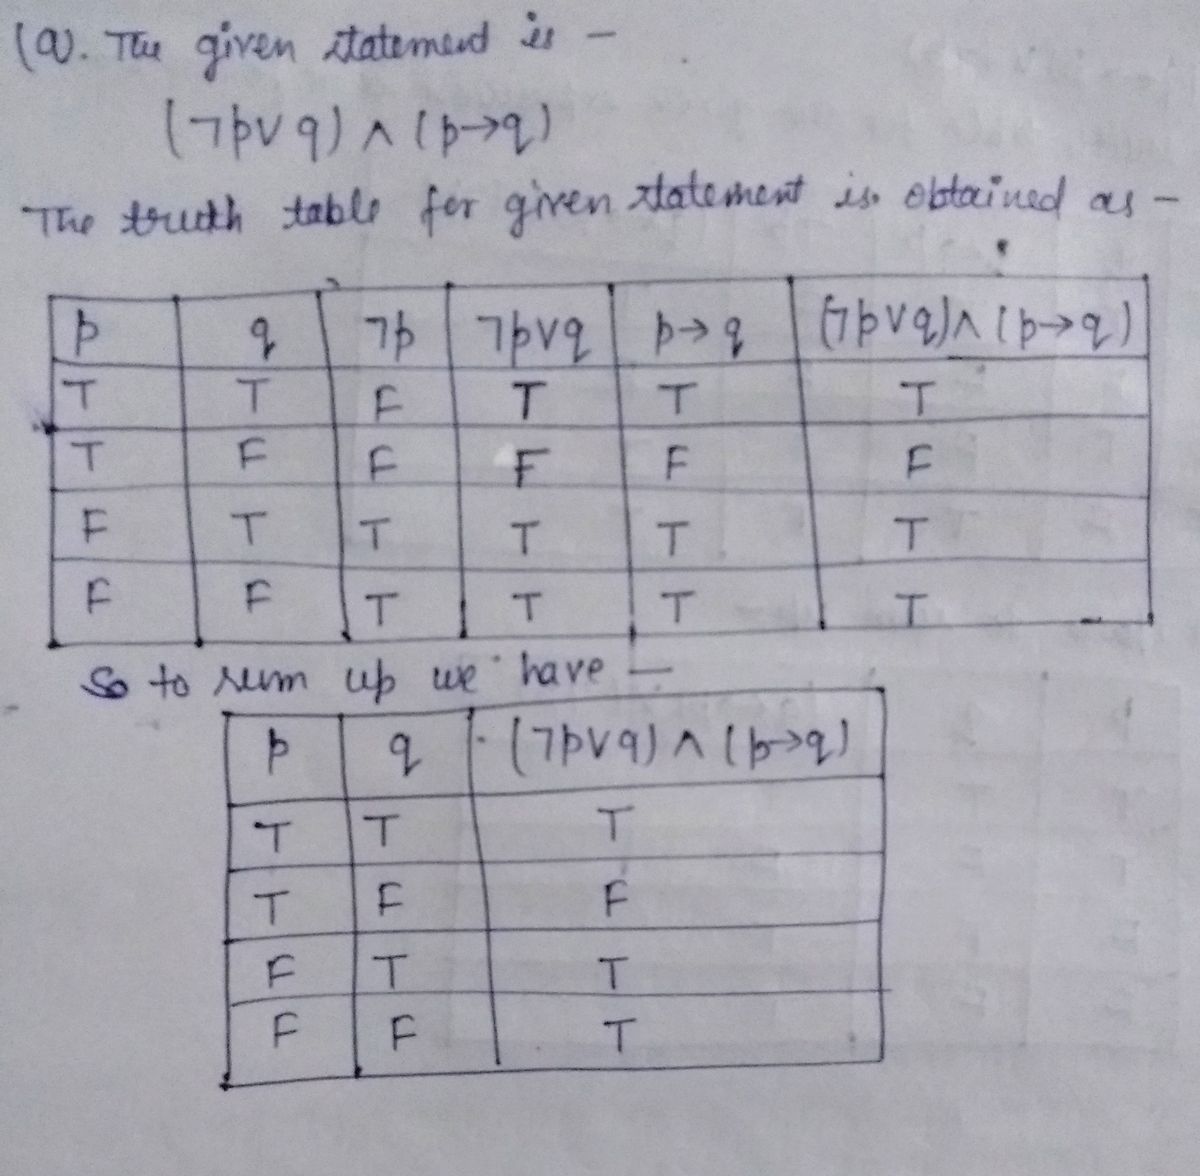 (a). The given statement is -
(¬p∨q) ∧ (p→q)
The truth table for given statement is obtained as -
p q ¬p ¬p∨q p→q (¬p∨q)∧(p→q)
T T F T T T
T F F F F F
F T T T T T
F F T T T T
So to sum up we have -
p q (¬p∨q) ∧ (p→q)
T T T
T F F
F T T
F F T